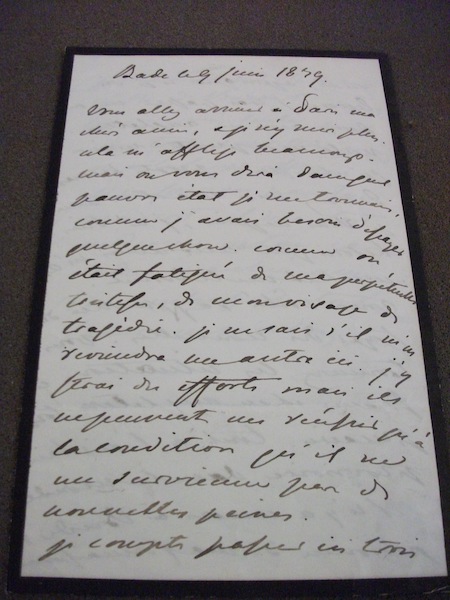 Bade le 9 juin 1859.
vous allez arriver à Paris ma
chère amie, et je n'y suis plus.
cela m'afflige beaucoup.
mais on vous dira dans quel
pauvre état je me trouvais,
comme j'avais besoin d'essayer
quelque chose. comme on
était fatigué de ma perpétuelle
tristesse, de mon visage de
tragédie. je ne sais s'il m'en
reviendra un autre ici. j'y
ferai des efforts mais ils
ne peuvent me réussir qu'à
la condition qu'il ne
me survienne pas de
nouvelles peines.
je compte passer ici trois